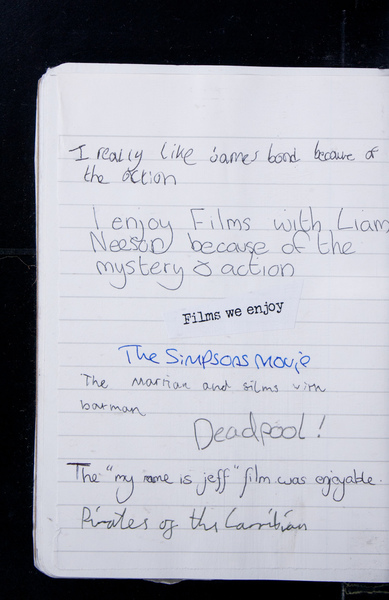 I really like James bond because of
the action
I enjoy Films with Liam
Neeson because of the
mystery & action
Films we enjoy
The Simpsons movie
The martian and films with
batman
Deadpool!
The "my name is jeff" film was enjoyable.
Pirates of the Carribian